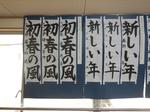 新しい年
新しい年
新しい年
初春の風
初春の風
初春の風